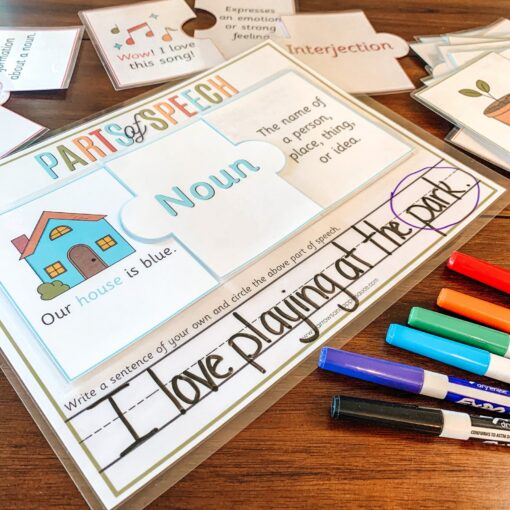 Expresses
an emotion
or strong
feeling
Wow! I love
this song!
Interjection
about a noun.
PARTS of SPEECH
Noun
The name of
a person,
place, thing,
or idea.
Our house is blue.
Write a sentence of your own and circle the above part of speech.
I love playing at the park.
EXPO